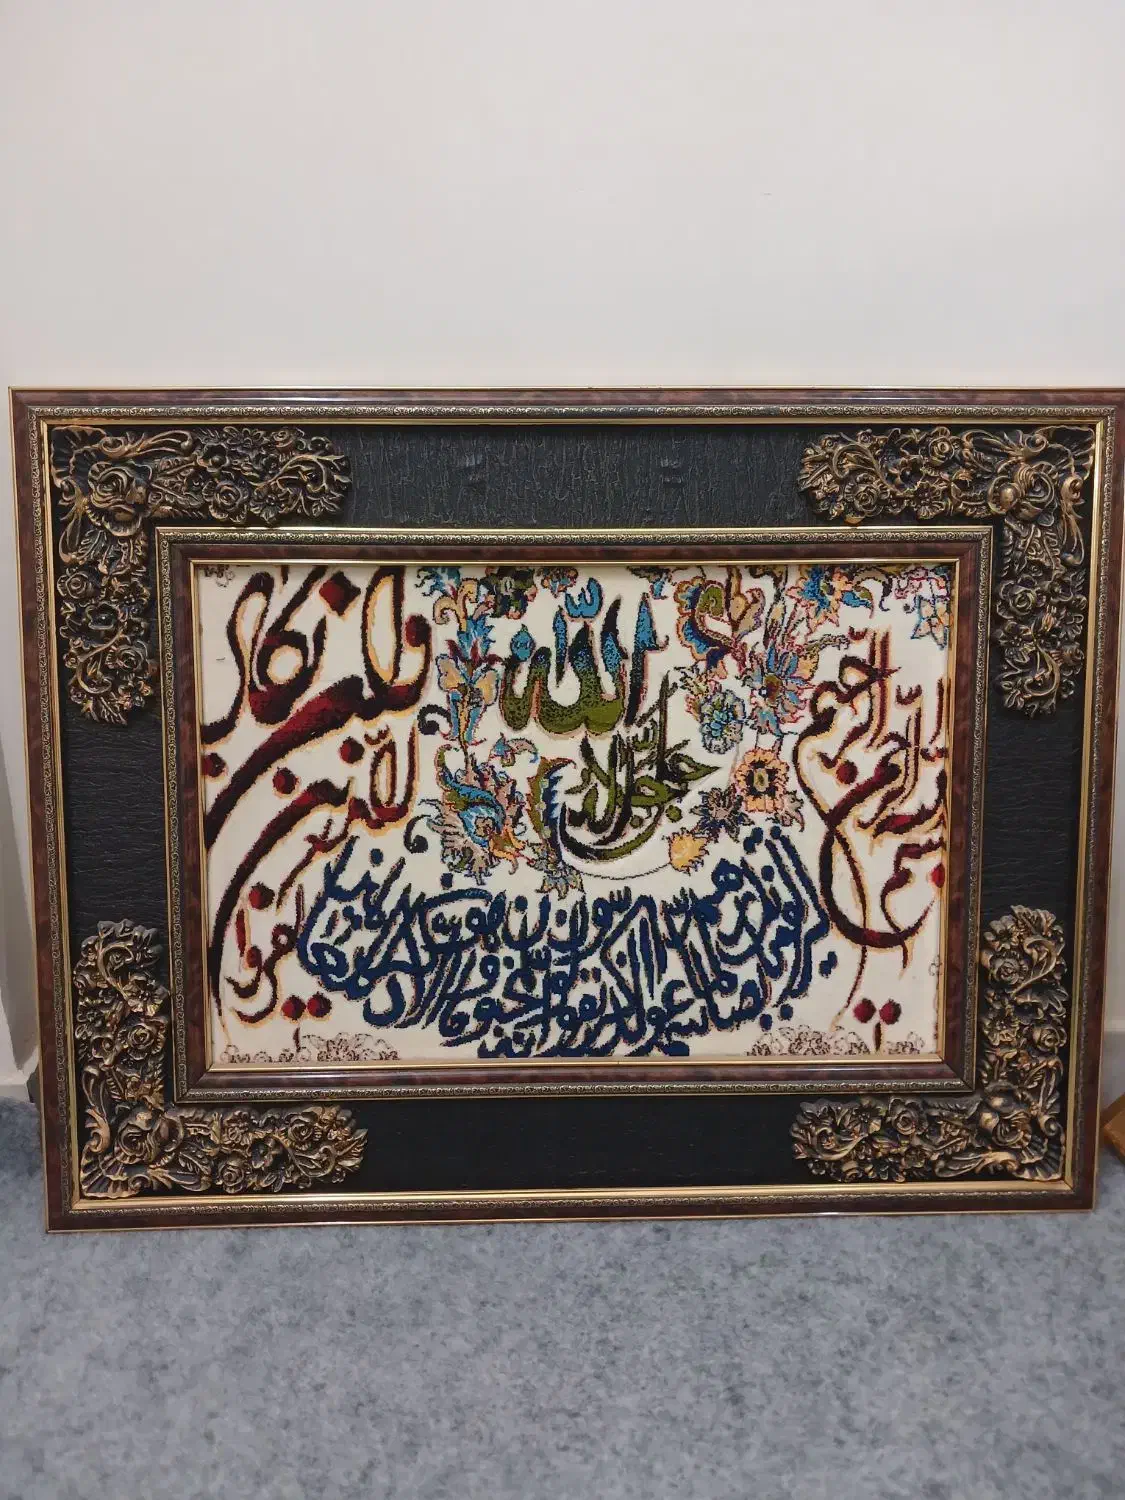 بسم الله الرحمن الرحیم
الله
جل جلاله
وان یکاد الذین کفروا لیزلقونک
بابصارهم لما سمعوا الذکر و یقولون انه لمجنون و ما هو الا ذکر للعالمین